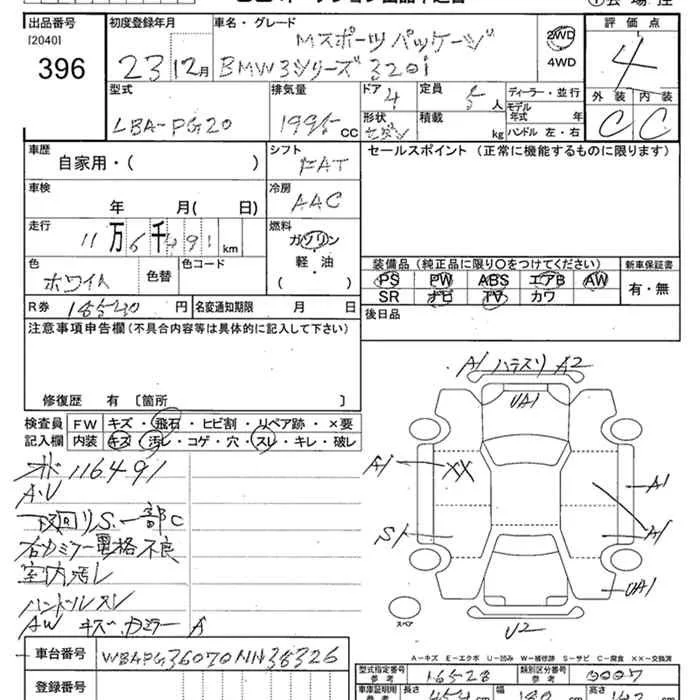 出品番号
[2040]
396
初度登録年月
23 12月
車名・グレード
Mスポーツパッケージ
BMW3シリーズ 320i
2WD
4WD
評価点
4
外装 内装
C C
型式
LBA-PG20
排気量
1995 cc
ドア
4
形状
セダン
定員
5人
積載
kg
ディーラー・並行
モデル
年式 年
ハンドル 左・右
車歴
自家用・( )
シフト
FAT
セールスポイント (正常に機能するものに限ります)
車検
年 月( 日)
冷房
AAC
走行
11万6千491km
燃料
ガソリン
軽・油
( )
色
ホワイト
色替
色コード
R券
18540円
名変通知期限 月 日
装備品 (純正品に限り○をつけてください)
PS PW ABS エアB AW
SR ナビ TV カワ
新車保証書
有・無
後日品
注意事項申告欄(不具合内容等は具体的に記入して下さい)
修復歴 有 [箇所 ]
検査員
記入欄
FW キズ・飛石・ヒビ割・リペア跡・×要
内装 キズ・汚レ・コゲ・穴・スレ・キレ・破レ
116491
S.一部C
右ミラー電格不良
室内汚レ
ハンドルスレ
AW キズ.カミラー A
A1 ハラスリ A2
UA1
A1
XX
A1
S1
A1
UA1
U2
スペア
A-キズ E-エクボ U-凹み W-補修跡 S-サビ C-腐食 XX-交換済
車台番号
WBAPG36070NN38326
登録番号
型式指定番号
参考
16528
類別区分番号
参考
0007
車庫証明用
参考
長さ
454
幅
180
高さ
142